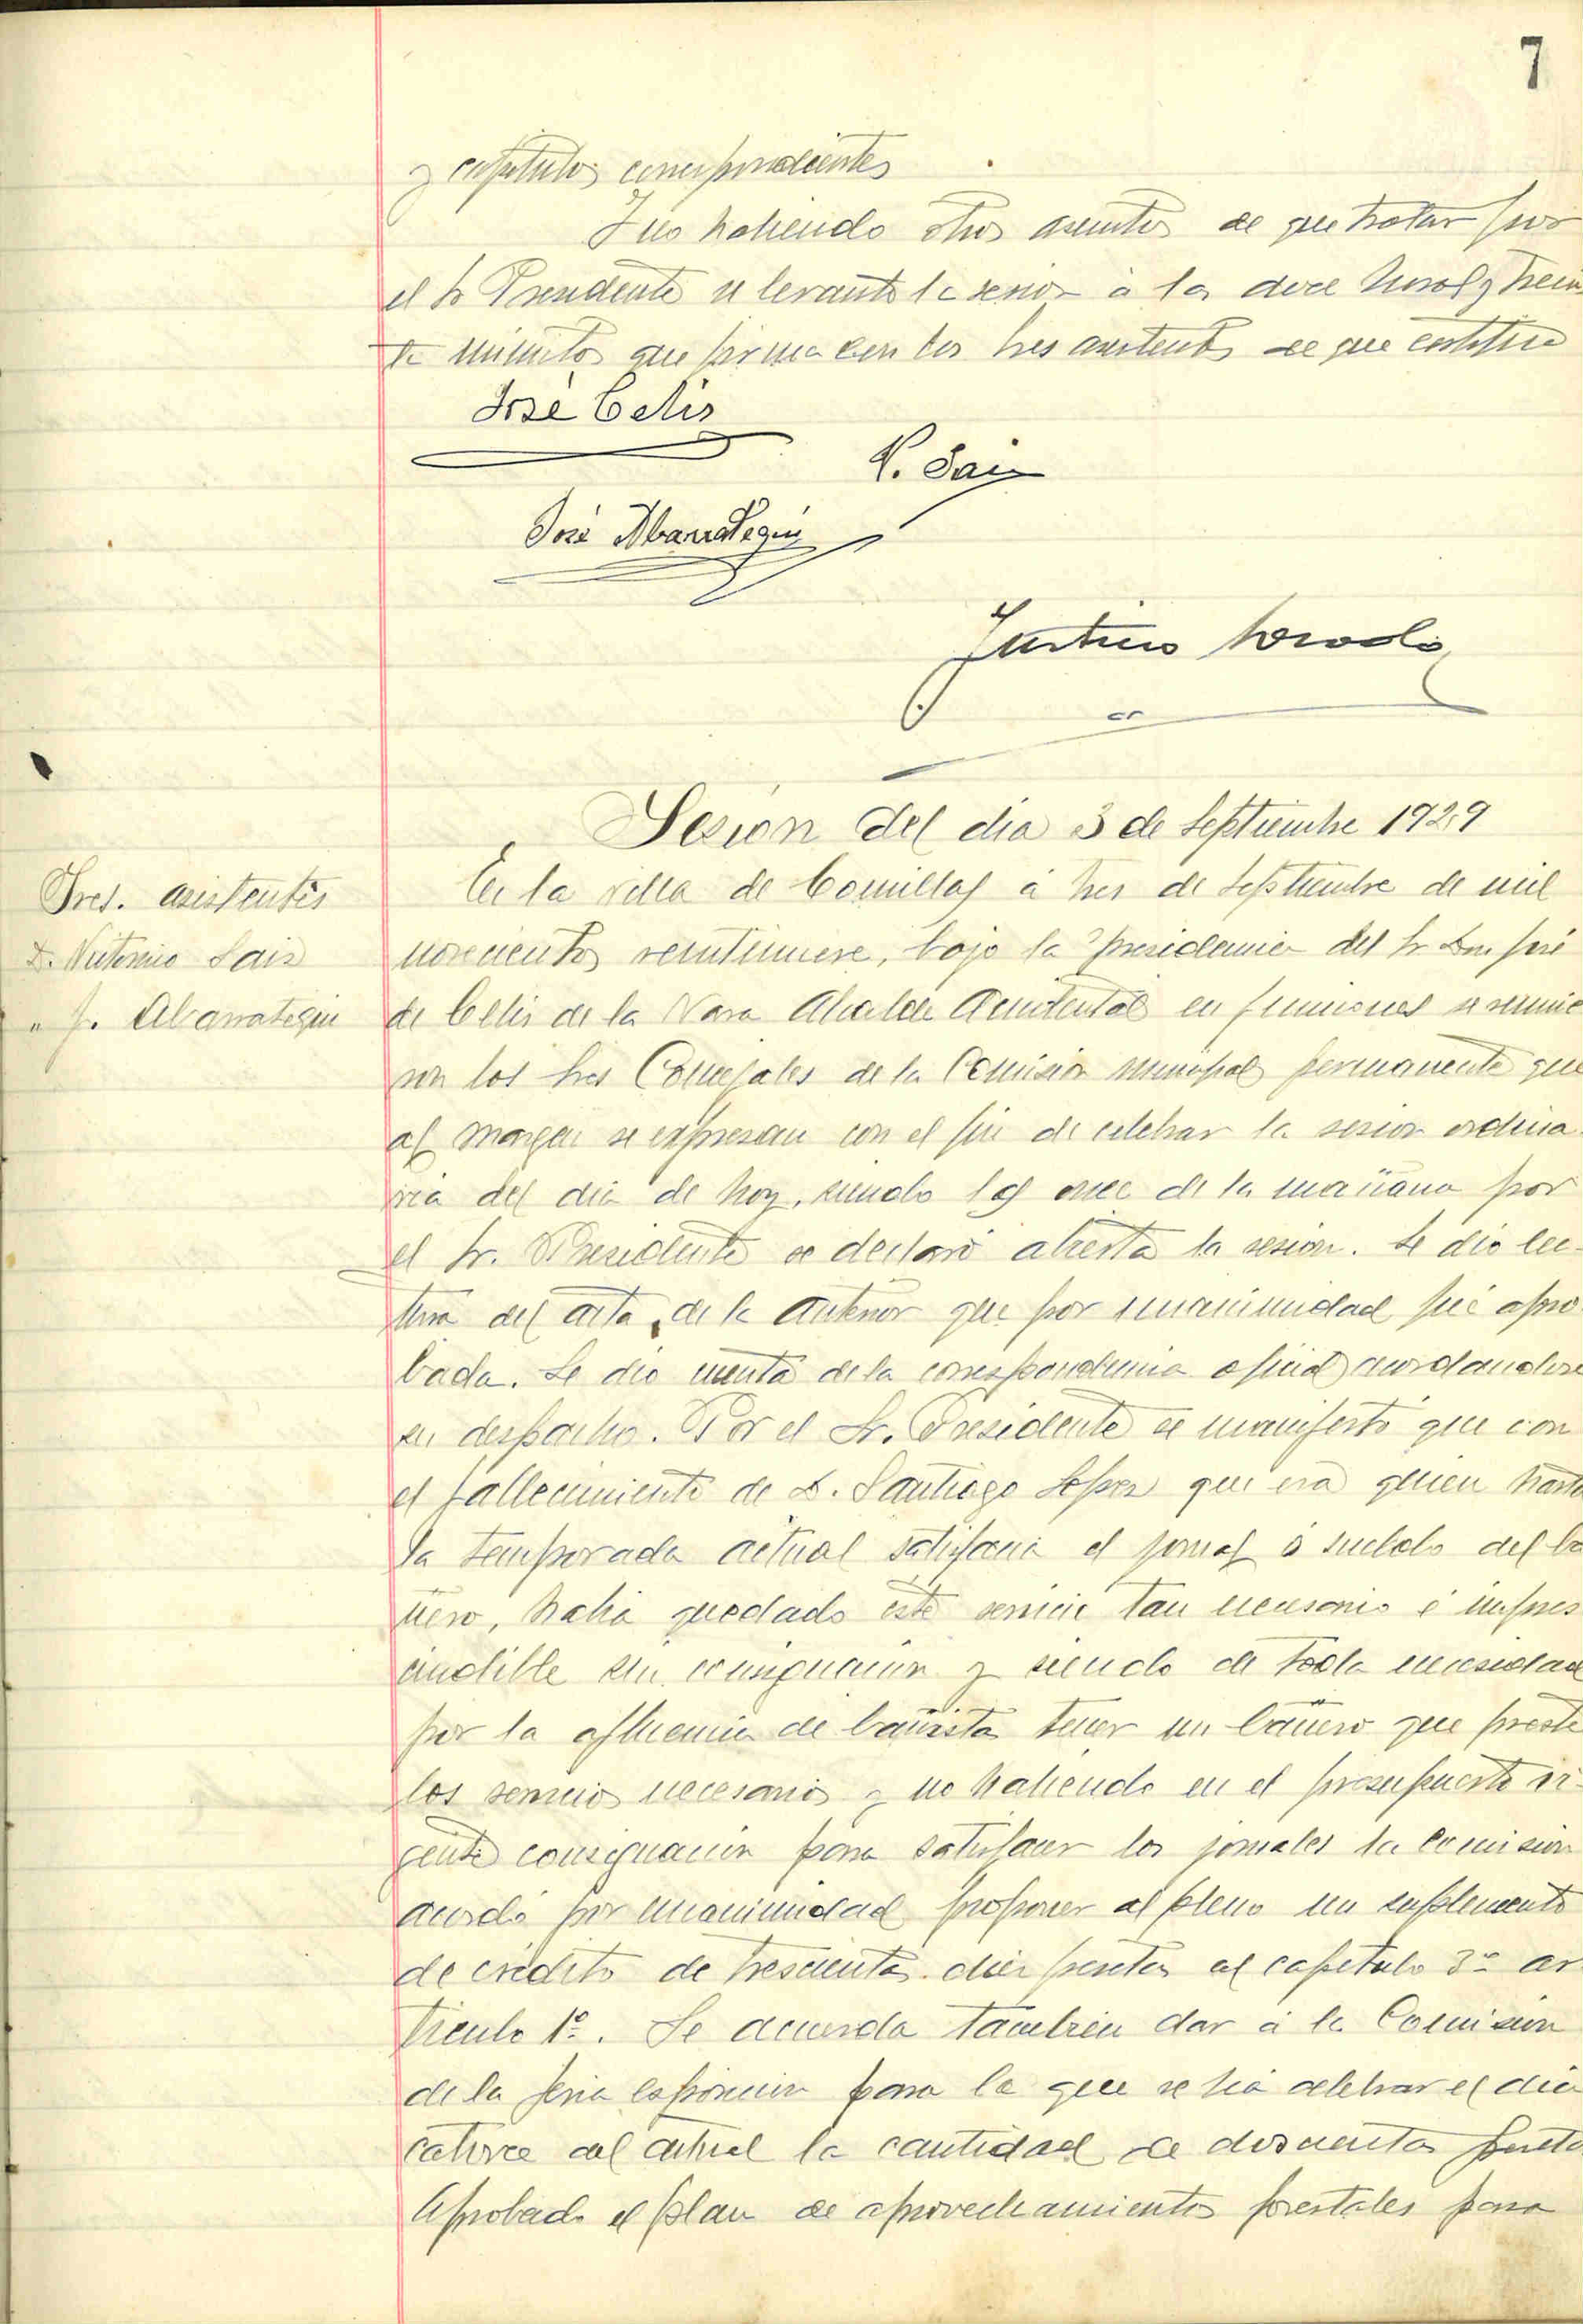 7
y capitulos correspondientes
Y no habiendo otros asuntos de que tratar por
el Sr Presidente se levanto la sesion a las doce horas y trein
ta minutos que firma con los Sres asistentes de que certifico
José Celis
V. Sainz
José Abarrategui
Justino
Sesion del dia 3 de Septiembre 1929
Sres. asistentes
D. Victorino Sainz
" J. Abarrategui
En la villa de Comillas á tres de Septiembre de mil
novecientos veintinueve, bajo la presidencia del Sr. Don José
de Celis de la Vara Alcalde Accidental en funciones se reunie
ron los Sres Concejales de la Comisión municipal permanente que
al margen se expresan con el fin de celebrar la sesion ordina
ria del dia de hoy, siendo las once de la mañana por
el Sr. Presidente se declaró abierta la sesión. Se dió lec-
tura del acta, de la anterior que por unanimidad fué apro
bada. Se dio cuenta de la correspondencia oficial acordandose
su despacho. Por el Sr. Presidente se manifestó que con
el fallecimiento de D. Santiago Lopez que era quien hasta
la temporada actual satisfacia el jornal ó sueldo del ba
ñero, habia quedado este servicio tan necesario é impres
cindible sin consignacion y siendo de toda necesidad
por la afluencia de bañistas tener un bañero que preste
los servicios necesarios y no habiendo en el presupuesto vi-
gente consignacion para satisfacer los jornales la Comision
acordó por unanimidad proponer al pleno un suplemento
de crédito de trescientas diez pesetas al capitulo 3º ar
ticulo 1º. Se acuerda tambien dar á la Comision
de la feria esposicion para la que se ha celebrar el dia
catorce del actual la cantidad de doscientas pesetas
Aprobado el plan de aprovechamientos forestales para